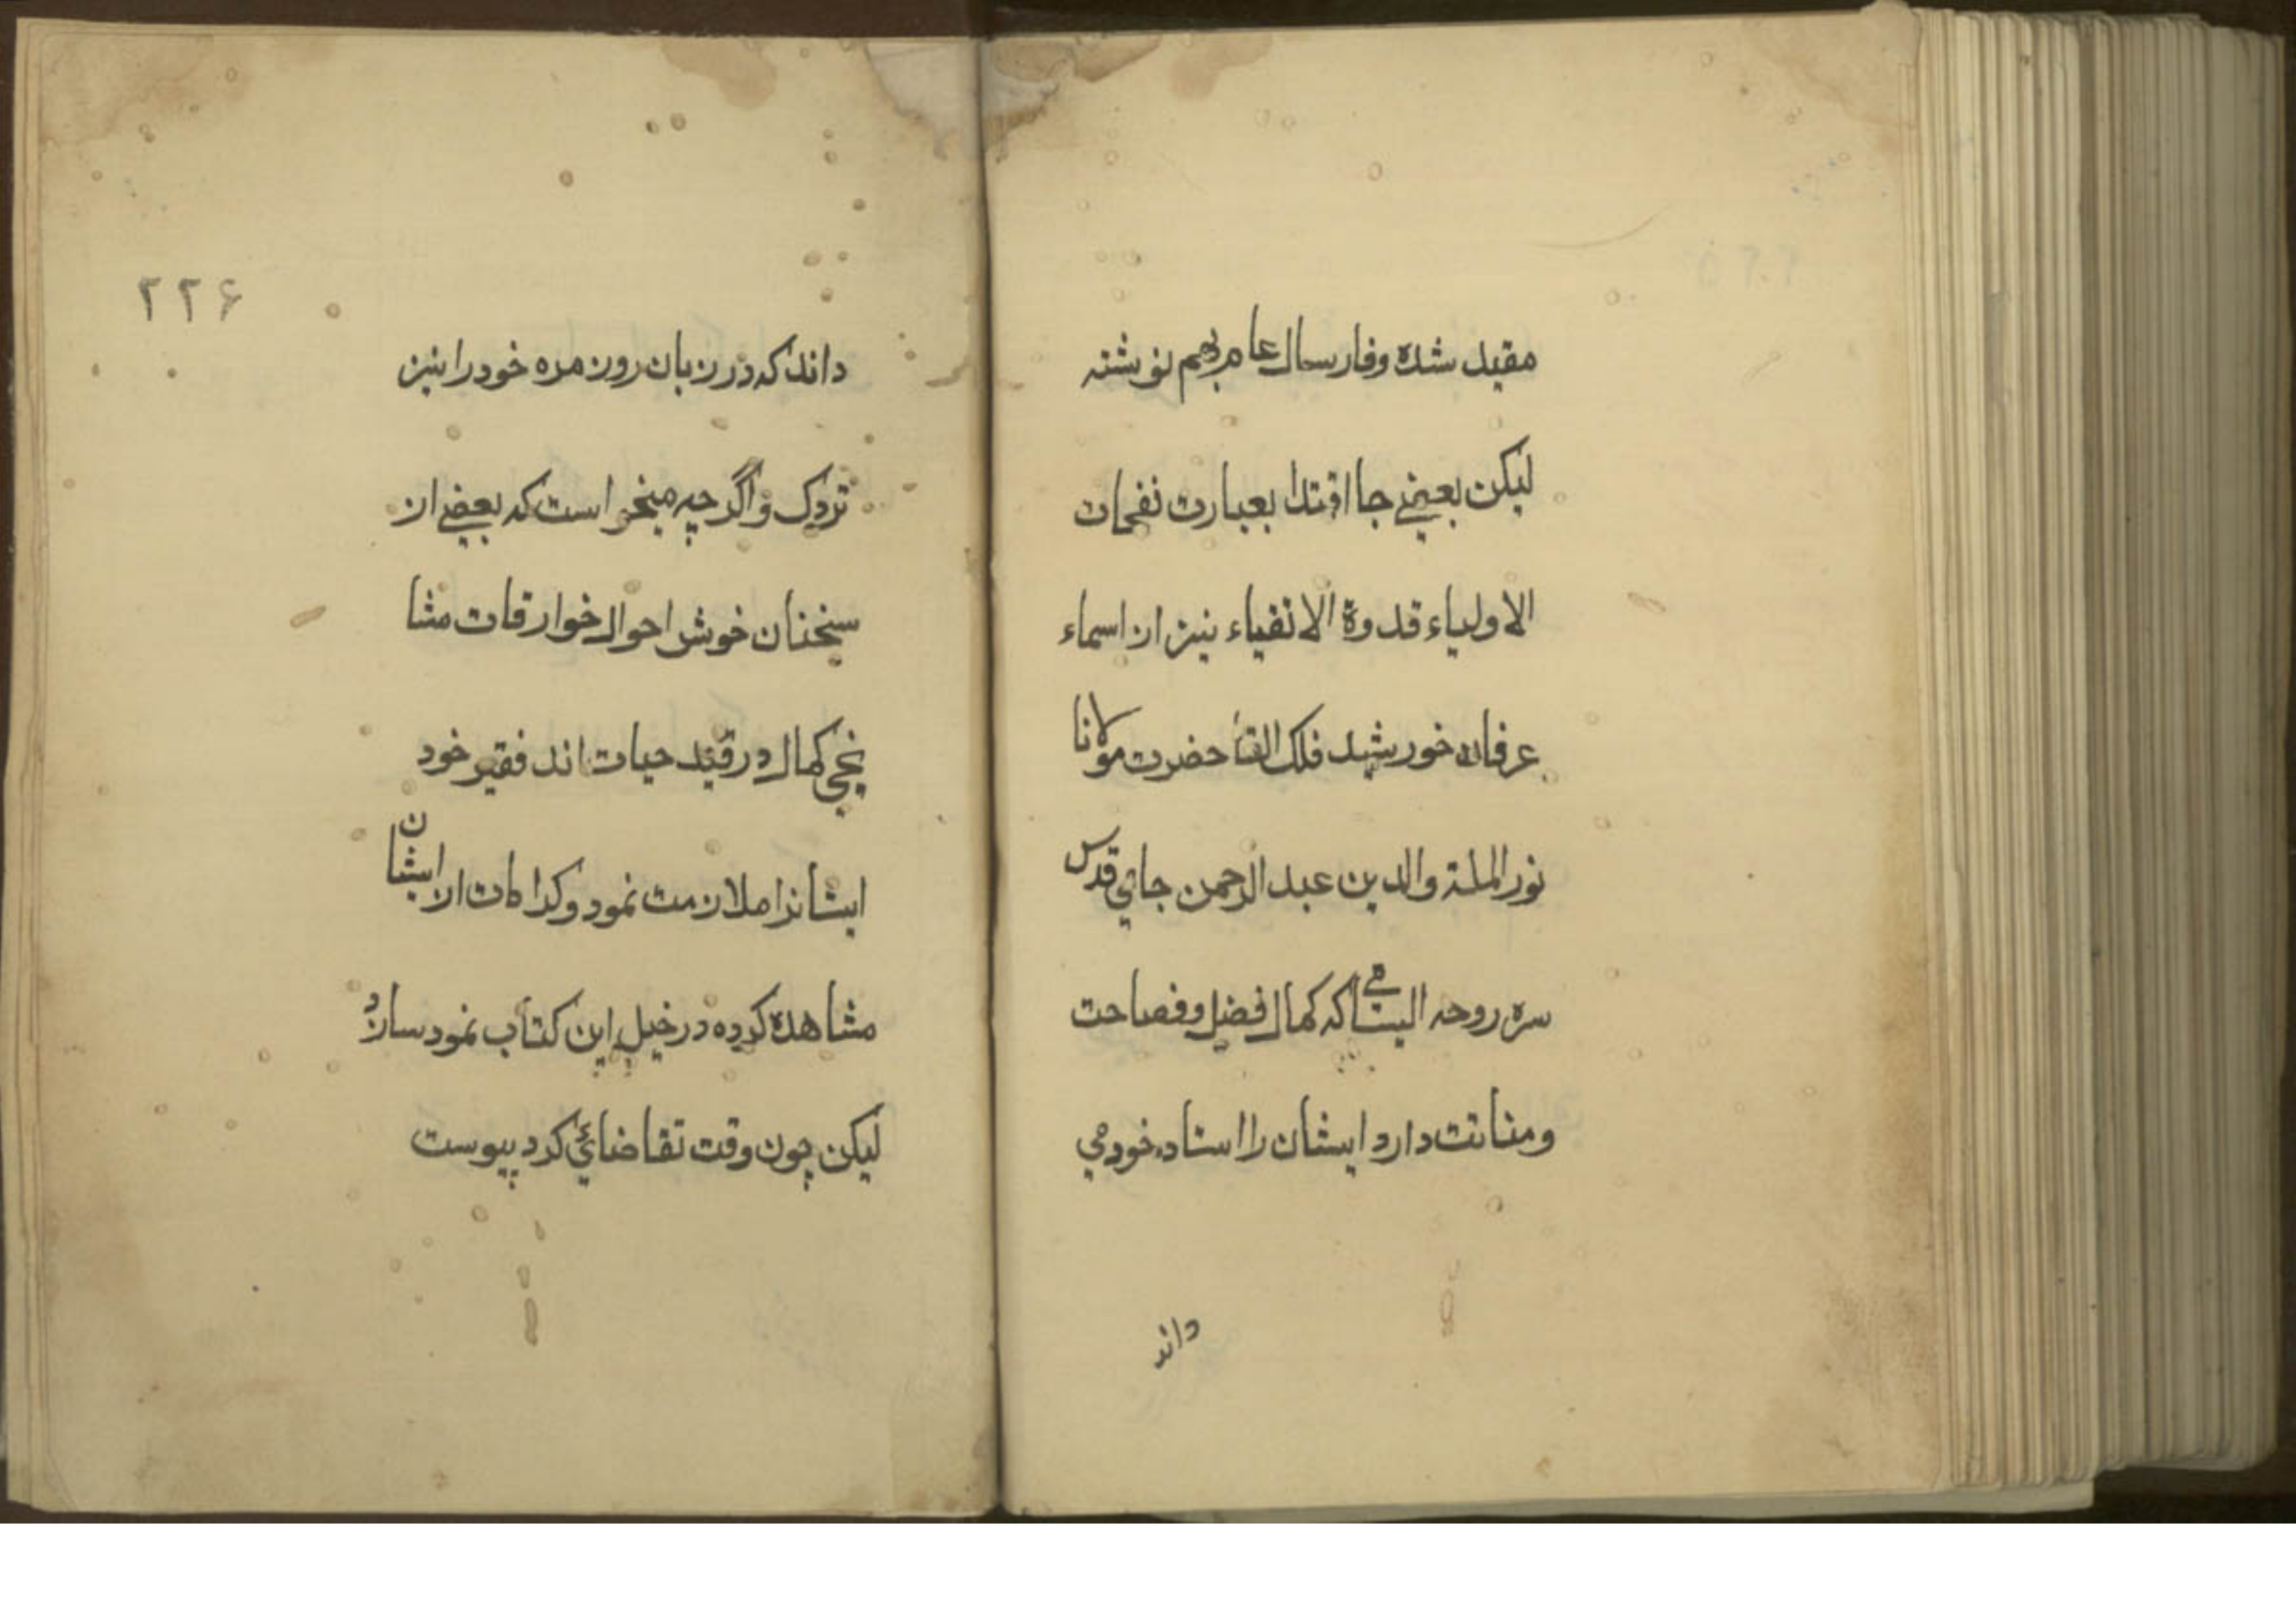 مقید شده وفارسال عام بهم نوشته
لیکن بعضے جا اقتدا بعبارت نفحات
الاولیاء قدوة الاتقیاء نیز از اسماء
عرفان خورشید فلک القا حضرت مولانا
نور الملة والدین عبد الرحمن جامي قدس
سره روحه الیشامي که کمال فضل وفصاحت
ومتانت دارد ایشان را استاد خود مي
داند
۲۲۶
داند که در زبان روز مره خود را نیز
واگرچه میخواست که بعضے از
سخنان خوش احوال خوارقات مشا
یخي کمال در قید حیات اند فقیر خود
ایشانرا ملازمت نمود وکرامات از ایشان
مشاهده کرده در خیل این کتاب نمود سازد
لیکن چون وقت تقاضائي کرد پیوست